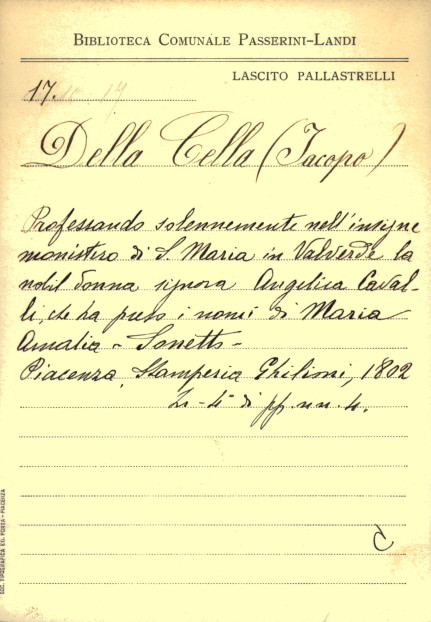 BIBLIOTECA COMUNALE PASSERINI-LANDI
LASCITO PALLASTRELLI
17.
Della Cella (Jacopo)
Professando solennemente nell'insigne
monistero di S. Maria in Valverde la
nobil donna signora Angelica Caval-
li, che ha preso i nomi di Maria
Amalia - Sonetto -
Piacenza, Stamperia Ghilioni, 1802
In - 4° di pp. nn. 4.
C
SOC. TIPOGRAFICA ED. PORTA - PIACENZA